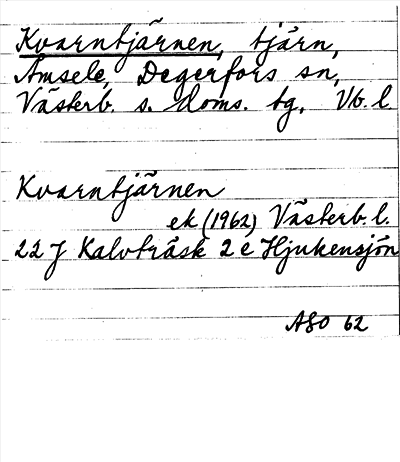 Kvarntjärnen, tjärn,
Åmsele, Degerfors sn,
Västerb. s. doms. tg, Vb. l.
Kvarntjärnen
ek (1962) Västerb. l.
22 J Kalvträsk 2 e Hjukensjön
ASO 62